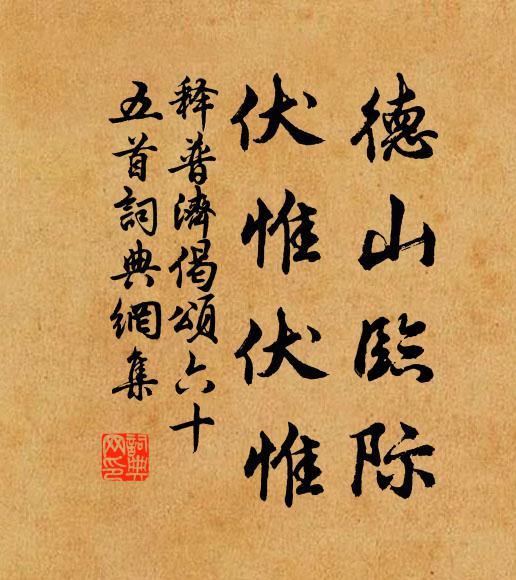 德山臨际
伏惟伏惟
释普濟偈頌六十
五首詞典網集
詞典网印